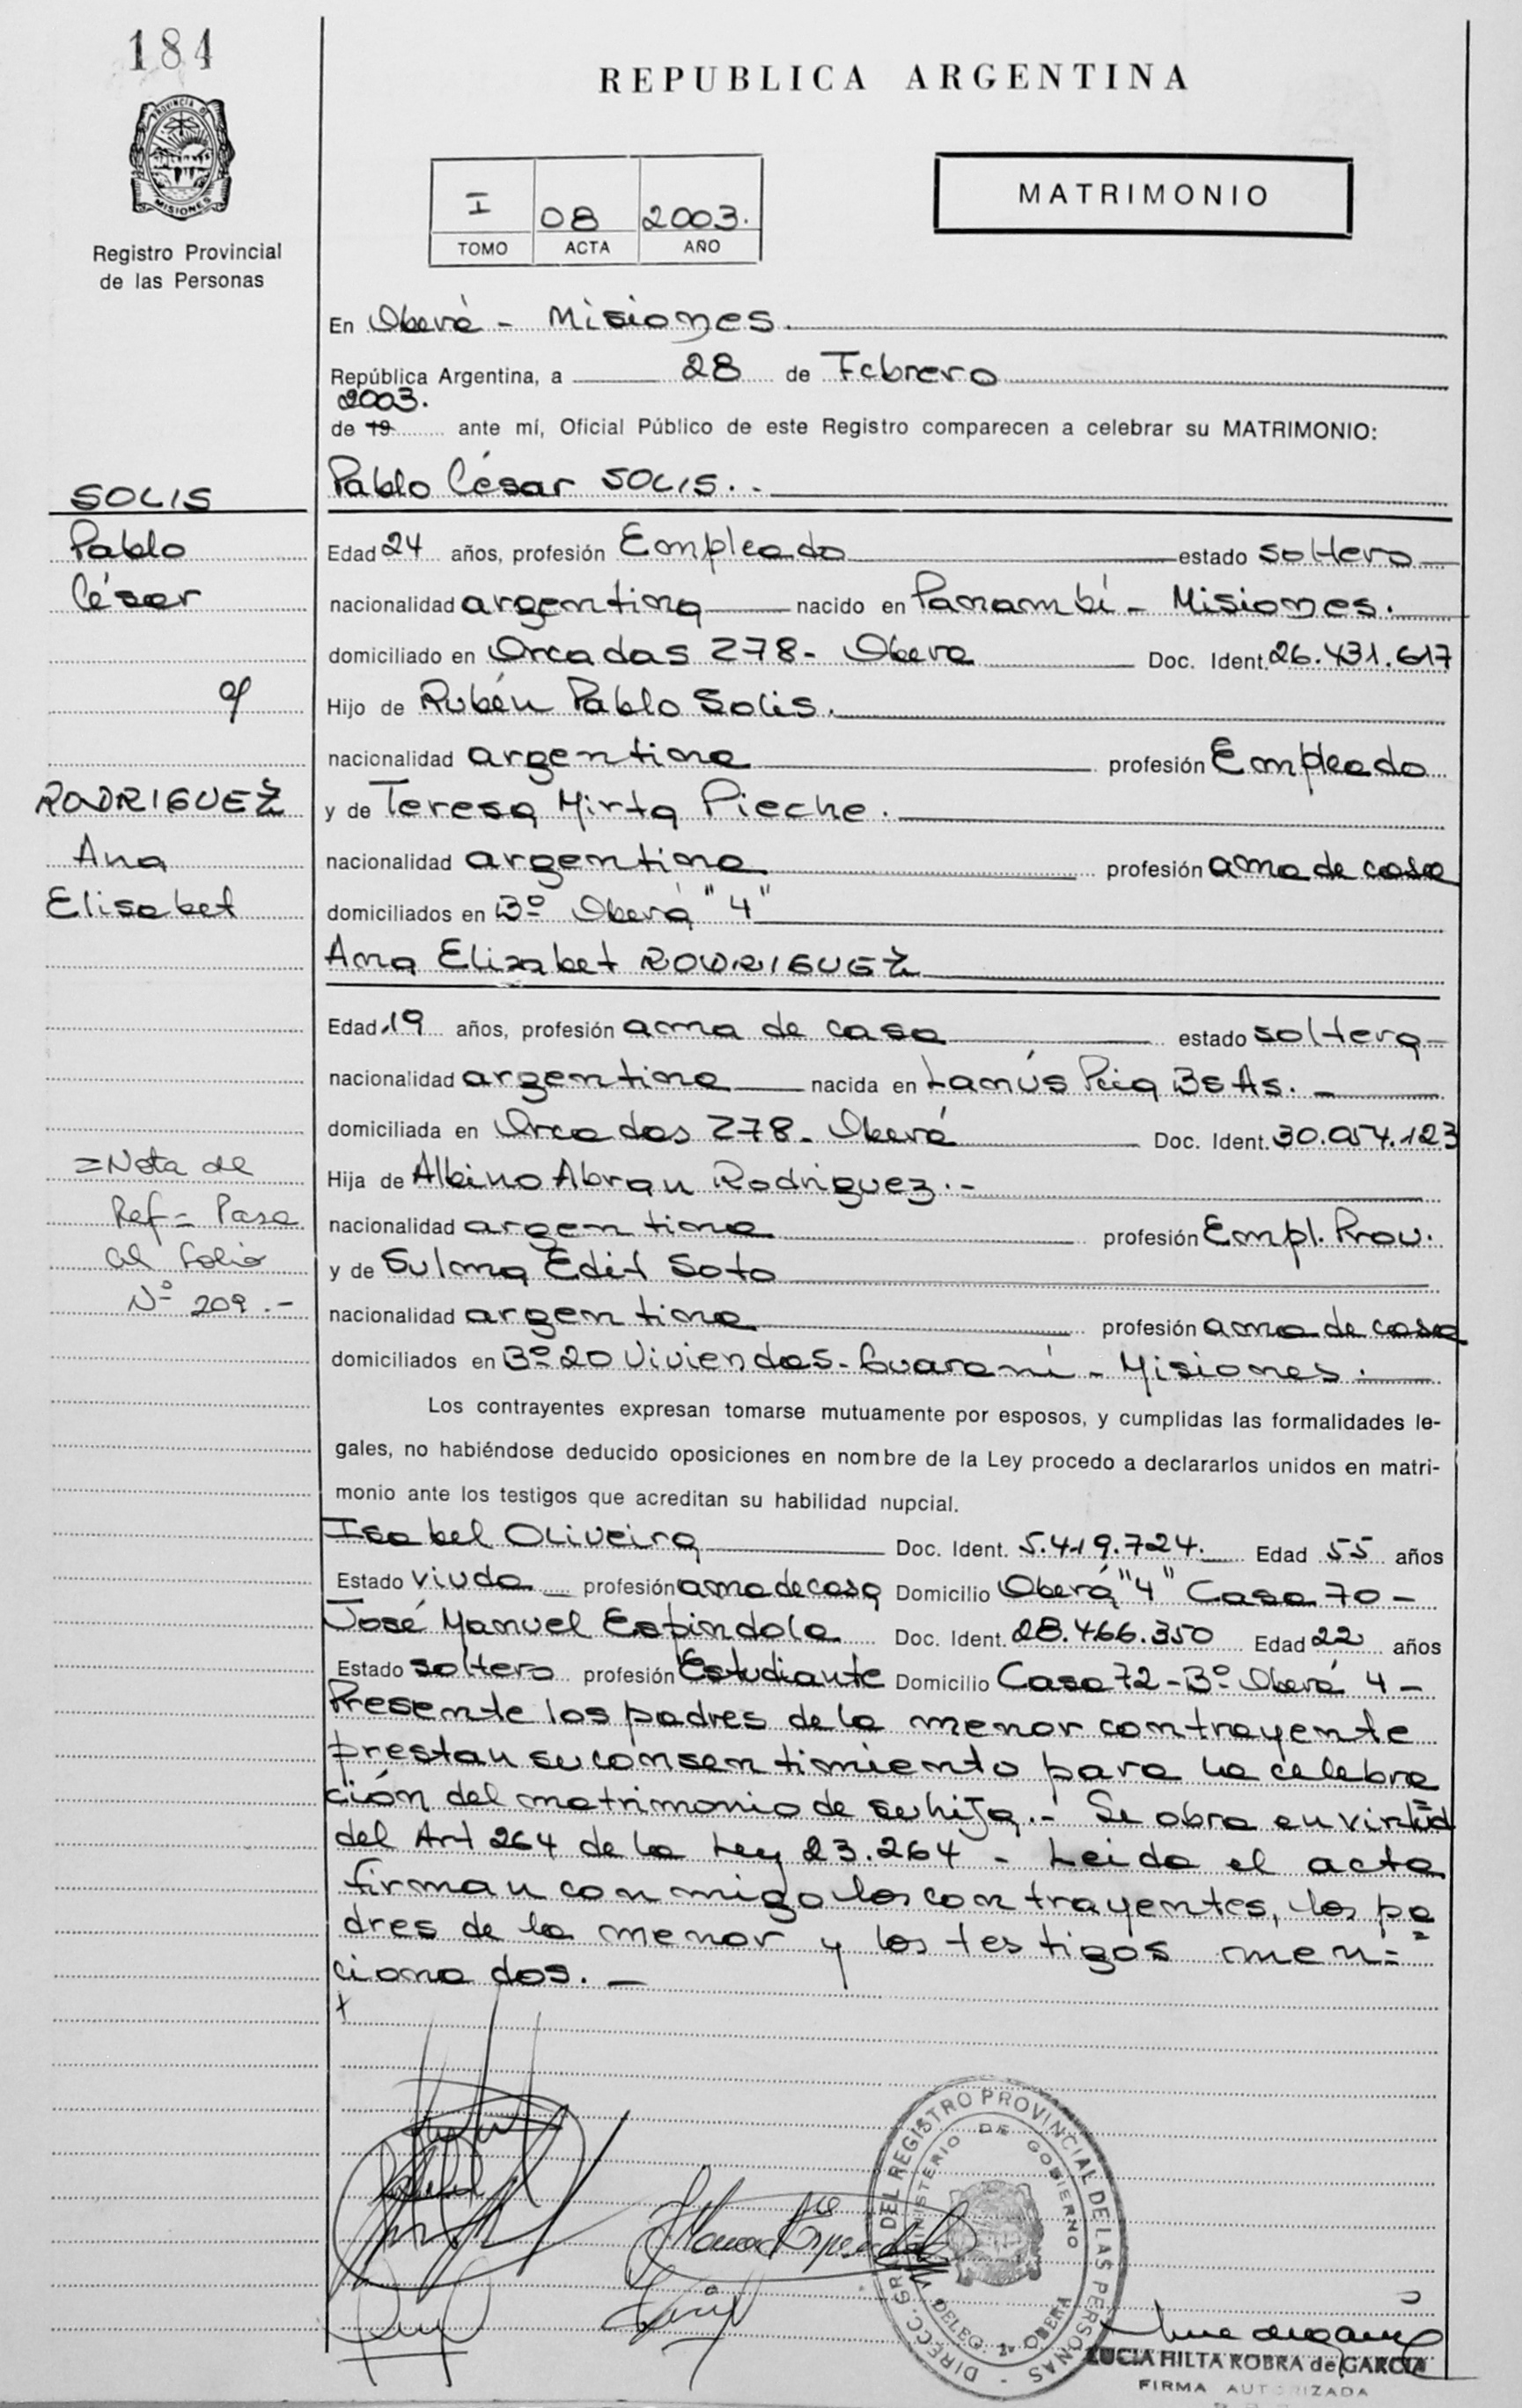 184
REPUBLICA ARGENTINA
PROVINCIA D
MISIONES
Registro Provincial
de las Personas
I 08 2003.
TOMO ACTA AÑO
MATRIMONIO
En Oberá - Misiones.
República Argentina, a 28 de Febrero
2003.
de 19 ante mí, Oficial Público de este Registro comparecen a celebrar su MATRIMONIO:
SOLIS
Pablo
César
Pablo César SOLIS.
Edad 24 años, profesión Empleado estado soltero
nacionalidad argentina nacido en Panambí - Misiones.
domiciliado en Orcadas 278 - Obera Doc. Ident. 26.431.617
Hijo de Rubén Pablo Solis.
nacionalidad argentina profesión Empleado
y de Teresa Mirta Pieche.
nacionalidad argentina profesión ama de casa
domiciliados en Bº Oberá "4"
RODRIGUEZ
Ana
Elisabet
Ana Elizabet RODRIGUEZ
Edad 19 años, profesión ama de casa estado soltera
nacionalidad argentina nacida en Lanús Bs As. -
domiciliada en Orcadas 278 - Oberá Doc. Ident. 30.054.123
Hija de Albino Abran Rodriguez.-
nacionalidad argentina profesión Empl. Prov.
y de Sulma Edit Soto
nacionalidad argentina profesión ama de casa
domiciliados en Bº 20 Viviendas - Guaraní - Misiones.
=Nota de
Ref= Pase
al folio
Nº 209.-
Los contrayentes expresan tomarse mutuamente por esposos, y cumplidas las formalidades le-
gales, no habiéndose deducido oposiciones en nombre de la Ley procedo a declararlos unidos en matri-
monio ante los testigos que acreditan su habilidad nupcial.
Isabel Oliveira Doc. Ident. 5.419.724. Edad 55 años
Estado viuda profesión ama de casa Domicilio Oberá "4" Casa 70 -
José Manuel Espindola Doc. Ident. 28.466.350 Edad 22 años
Estado soltero profesión Estudiante Domicilio Casa 72 - Bº Oberá 4 -
Presente los padres de la menor contrayente
prestan su consentimiento para la celebra
ción del matrimonio de su hija.- Se obra en virtud
del Art 264 de la Ley 23.264 - Leida el acta
firman conmigo los contrayentes, los pa=
dres de la menor y los testigos men=
cionados. -
DIRECC. GRAL DEL REGISTRO PROVINCIAL DE LAS PERSONAS
MINISTERIO DE GOBIERNO
DELEG. OBERA
LUCIA HILTA ROBRA de GARCIA
FIRMA AUTORIZADA